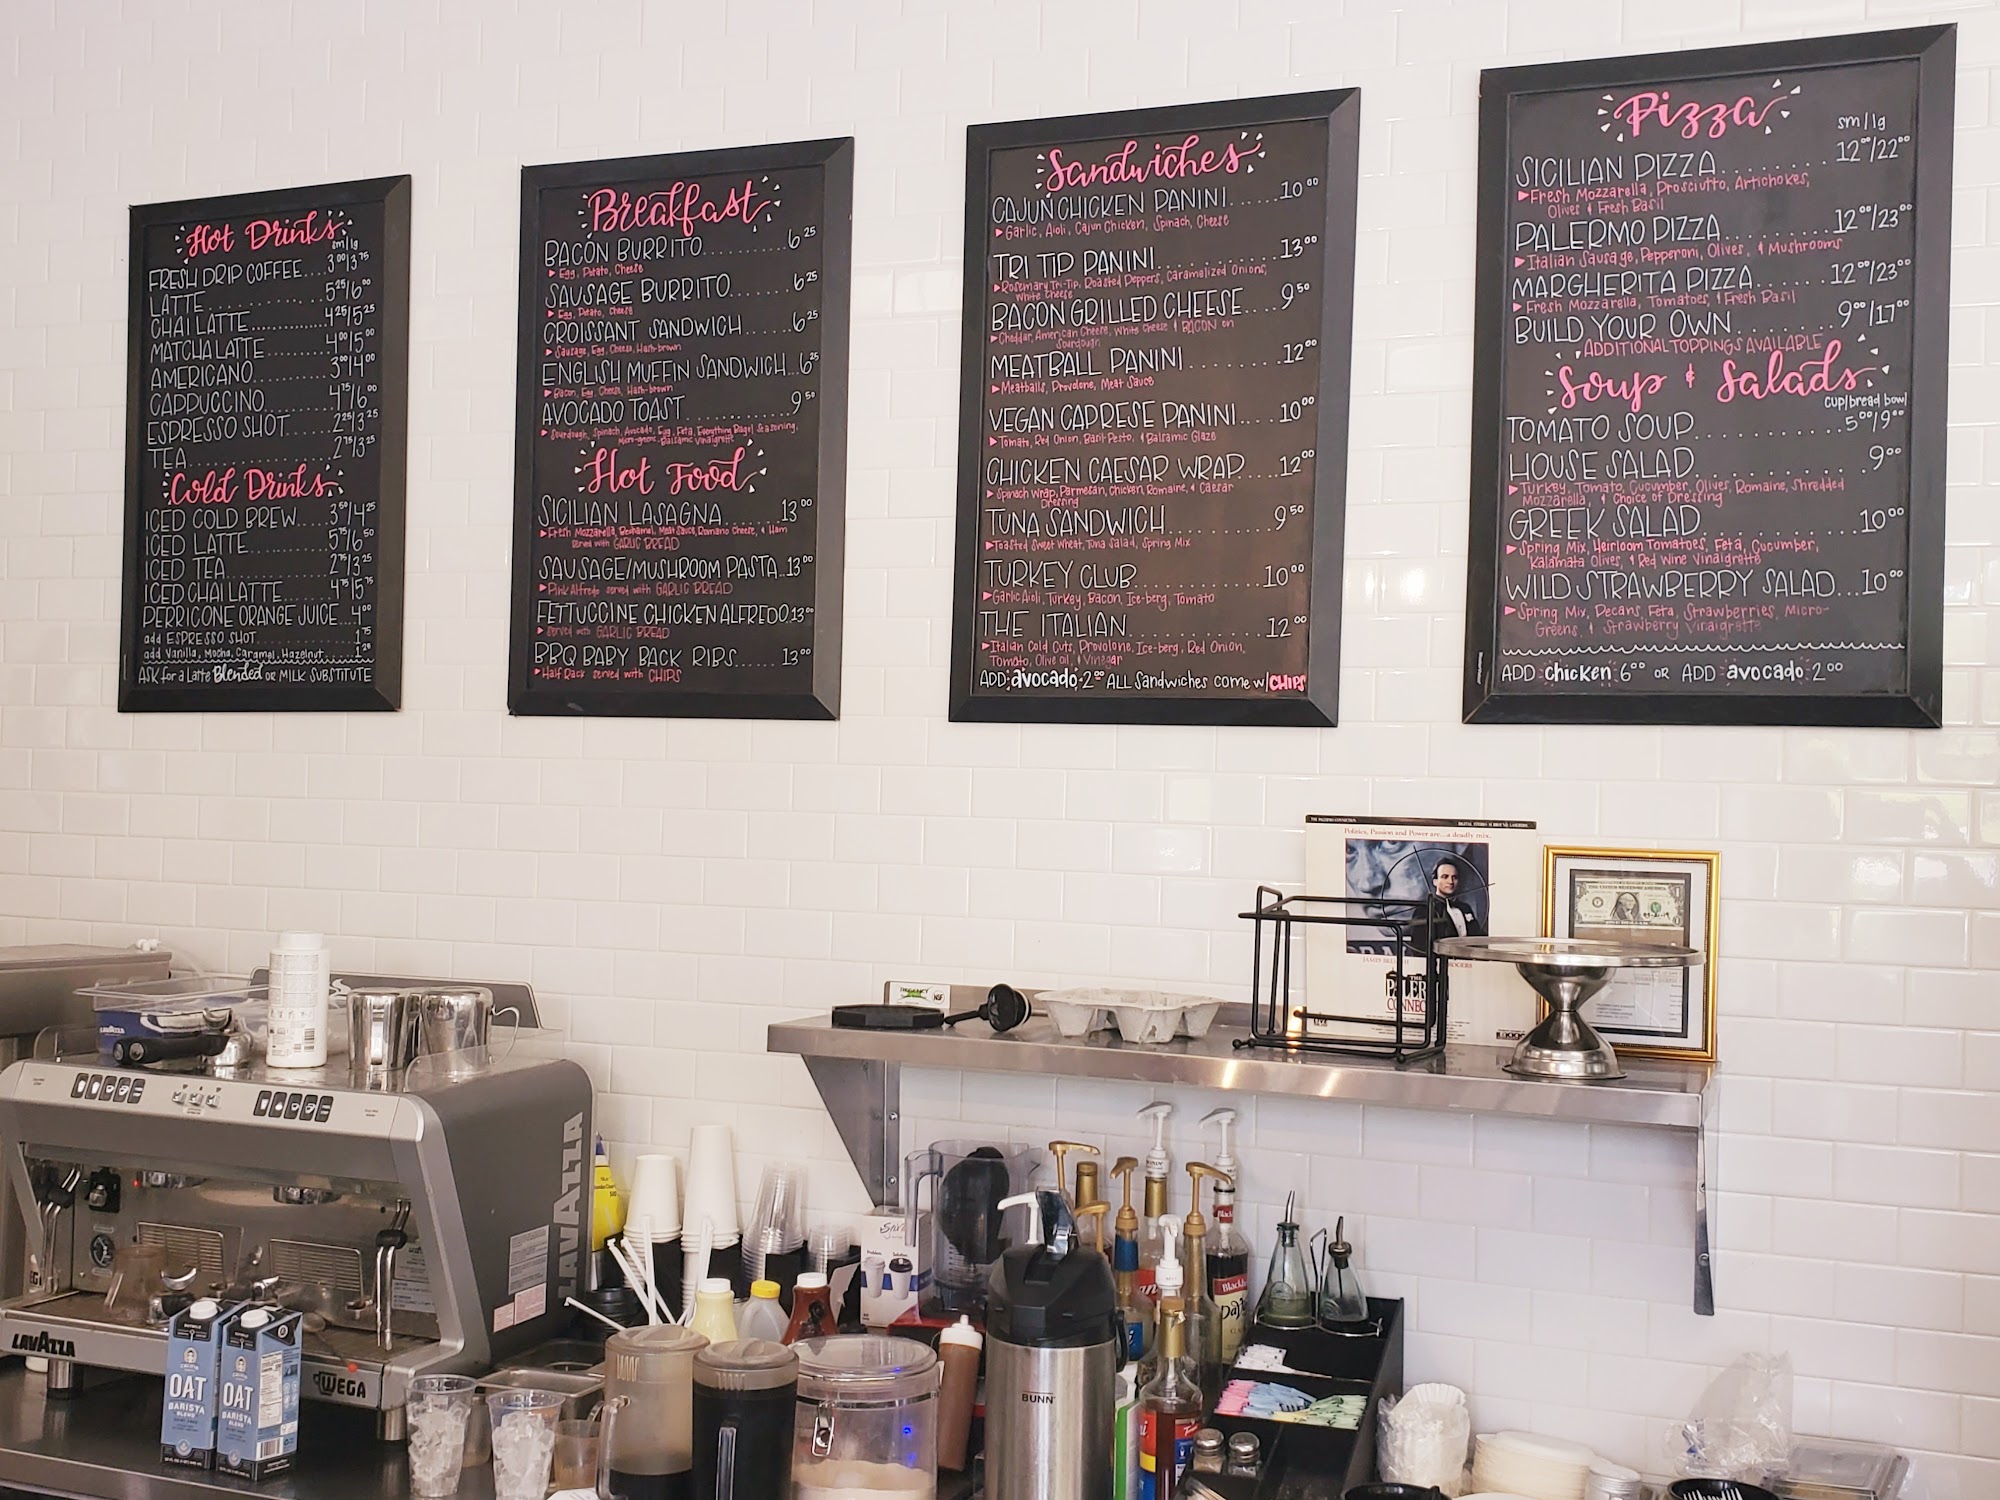 Hot Drinks
sm/lg
FRESH DRIP COFFEE....3⁰⁰/3⁷⁵
LATTE..............5²⁵/6⁰⁰
CHAI LATTE............4²⁵/5²⁵
MATCHA LATTE........4⁰⁰/5⁰⁰
AMERICANO.........3⁰⁰/4⁰⁰
CAPPUCCINO........4⁷⁵/6⁰⁰
ESPRESSO SHOT......2²⁵/3²⁵
TEA..................2⁷⁵/3²⁵
Cold Drinks
ICED COLD BREW....3⁵⁰/4²⁵
ICED LATTE..........5⁷⁵/6⁵⁰
ICED TEA............2⁷⁵/3²⁵
ICED CHAI LATTE......4⁷⁵/5⁷⁵
PERRICONE ORANGE JUICE...4⁰⁰
add ESPRESSO SHOT..............1⁷⁵
add Vanilla, Mocha, Caramel, Hazelnut......1²⁰
ASK for a Latte Blended or MILK SUBSTITUTE
Breakfast
BACON BURRITO..........6²⁵
▶ Egg, Potato, Cheese
SAUSAGE BURRITO.......6²⁵
▶ Egg, Potato, Cheese
CROISSANT SANDWICH......6²⁵
▶ Sausage, Egg, Cheese, Hash-brown
ENGLISH MUFFIN SANDWICH...6²⁵
▶ Bacon, Egg, Cheese, Hash-brown
AVOCADO TOAST..........9⁵⁰
▶ Sourdough, Spinach, Avocado, Egg, Feta, Everything Bagel Seasoning,
Micro-greens, Balsamic Vinaigrette
Hot Food
SICILIAN LASAGNA.......13⁰⁰
▶ Fresh Mozzarella, Bechamel, Meat Sauce, Romano Cheese, & Ham
served with GARLIC BREAD
SAUSAGE/MUSHROOM PASTA..13⁰⁰
▶ Pink Alfredo served with GARLIC BREAD
FETTUCCINE CHICKEN ALFREDO.13⁰⁰
▶ served with GARLIC BREAD
BBQ BABY BACK RIBS.....13⁰⁰
▶ Half Rack served with CHIPS
Sandwiches
CAJUN CHICKEN PANINI......10⁰⁰
▶ Garlic, Aioli, Cajun Chicken, Spinach, Cheese
TRI TIP PANINI............13⁰⁰
▶ Rosemary Tri-Tip, Roasted Peppers, Caramelized Onions,
White Cheese
BACON GRILLED CHEESE....9⁵⁰
▶ Cheddar, American Cheese, White Cheese & BACON on
Sourdough
MEATBALL PANINI.........12⁰⁰
▶ Meatballs, Provolone, Meat Sauce
VEGAN CAPRESE PANINI....10⁰⁰
▶ Tomato, Red Onion, Basil-Pesto, & Balsamic Glaze
CHICKEN CAESAR WRAP....12⁰⁰
▶ Spinach Wrap, Parmesan, Chicken, Romaine, & Caesar
Dressing
TUNA SANDWICH..........9⁵⁰
▶ Toasted Sweet Wheat, Tuna Salad, Spring Mix
TURKEY CLUB...........10⁰⁰
▶ Garlic Aioli, Turkey, Bacon, Ice-berg, Tomato
THE ITALIAN............12⁰⁰
▶ Italian Cold Cuts, Provolone, Ice-berg, Red Onion,
Tomato, Olive oil, & Vinegar
ADD avocado 2⁰⁰ ALL Sandwiches come w/ CHIPS
Pizza
sm/lg
SICILIAN PIZZA.........12⁰⁰/22⁰⁰
▶ Fresh Mozzarella, Prosciutto, Artichokes,
Olives & Fresh Basil
PALERMO PIZZA........12⁰⁰/23⁰⁰
▶ Italian Sausage, Pepperoni, Olives, & Mushrooms
MARGHERITA PIZZA......12⁰⁰/23⁰⁰
▶ Fresh Mozzarella, Tomatoes, & Fresh Basil
BUILD YOUR OWN........9⁰⁰/17⁰⁰
ADDITIONAL TOPPINGS AVAILABLE
Soup & Salads
cup/bread bowl
TOMATO SOUP..........5⁰⁰/9⁰⁰
HOUSE SALAD............9⁰⁰
▶ Turkey, Tomato, Cucumber, Olives, Romaine, Shredded
Mozzarella, & Choice of Dressing
GREEK SALAD..........10⁰⁰
▶ Spring Mix, Heirloom Tomatoes, Feta, Cucumber,
Kalamata Olives, & Red Wine Vinaigrette
WILD STRAWBERRY SALAD...10⁰⁰
▶ Spring Mix, Pecans, Feta, Strawberries, Micro-
Greens, & Strawberry Vinaigrette
ADD chicken 6⁰⁰ OR ADD avocado 2⁰⁰
Politics, Passion and Power are...a deadly mix.
THE
NSF
LAVAZZA
LAVAZZA
WEGA
OAT
BARISTA
BLEND
OAT
BARISTA
BLEND
BUNN